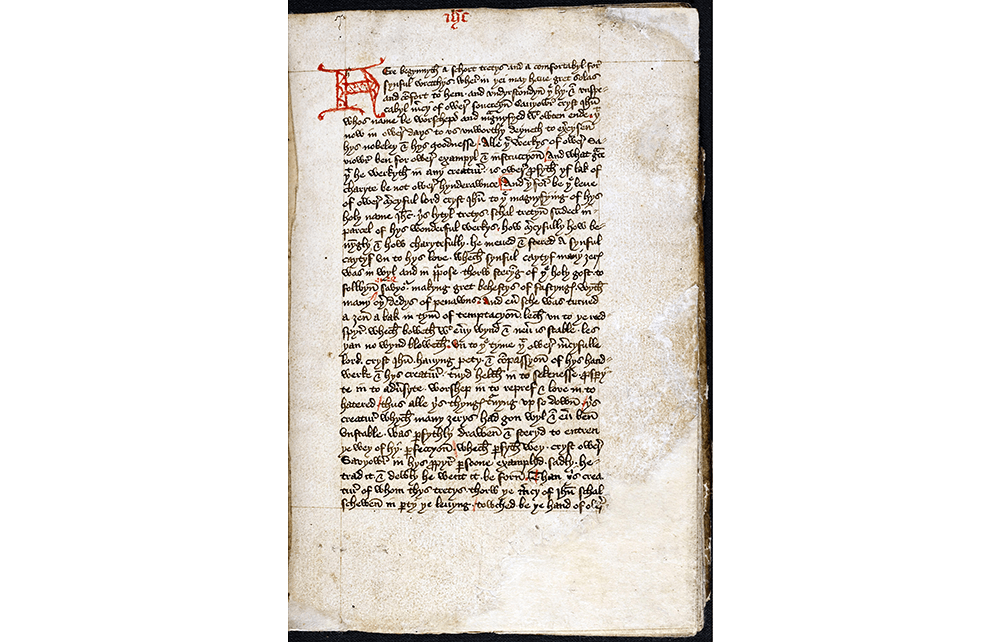 ihc
Here begynnyth a schort tretys and a comfortabyl for
synful wrecchys. wher in þei may haue gret solas
and cõfort to hem. and vndyrstondyn þe hy. & vnspe-
cabyl mercy of ower souereyn Sauyowr cryst Jhũ
whos name be worschepd and magnyfyed wtowten ende. þt
now in ower days to vs vnworthy deyneth to exercysen
hys nobeley & hys goodnesse. Alle þe werkys of ower Sa-
uiowr ben for ower exampyl & instruccyon and what grce
þt he werkyth in any creatur. is ower profyth yf lak of
charyte be not ower hynderawnce. And þerfor be þe leue
of ower mercyful lord cryst Jhũ to þe magnyfying of hys
holy name Jhc. þis lytyl tretys schal tretyn sumdeel in
parcel of hys wonderful werkys. how mercyfully how be-
nyngly & how charytefully. he meued & stered a synful
caytyf vn to hys loue. whech synful caytyf many ȝerys
was in wyl and in purpose thorw steryng of þe holy gost. to
folwyn oure sauyor. makyng gret behestys of fastyngs. wyth
many oþer dedys of penawns. And euer sche was turned
a ȝen a bak in tym of temptacyon. lech vn to þe red
spyr. whech boweth wt euery wynd & neuer is stable. les
þan no wynd bloweth. vn to þe tyme þt ower mercyfulle
lord. cryst Jhũ. hauyng pety. & cõpassyon of hys hand
werke & hys creatur. turnyd helth in to sekenesse. prosperi
te in to aduersyte. worshep in to repref & loue in to
hatered. thus alle þis thyngs turnyng vp so down. þis
creatur whych many ȝerys had gon wyl & euer ben
vnstable. was parfythly drawen & steryd to entren
þe wey of hy perfeccyon whech parfyth wey. cryst ower
Savyowr in hys propyr persone examplyd. sadly. he
trad it & dewly he went it. be forn. Than þis crea
tur of whom thys tretys thorw þe mercy of Jhũ schal
schewen in party þe leuyng. towched be þe hand of ower